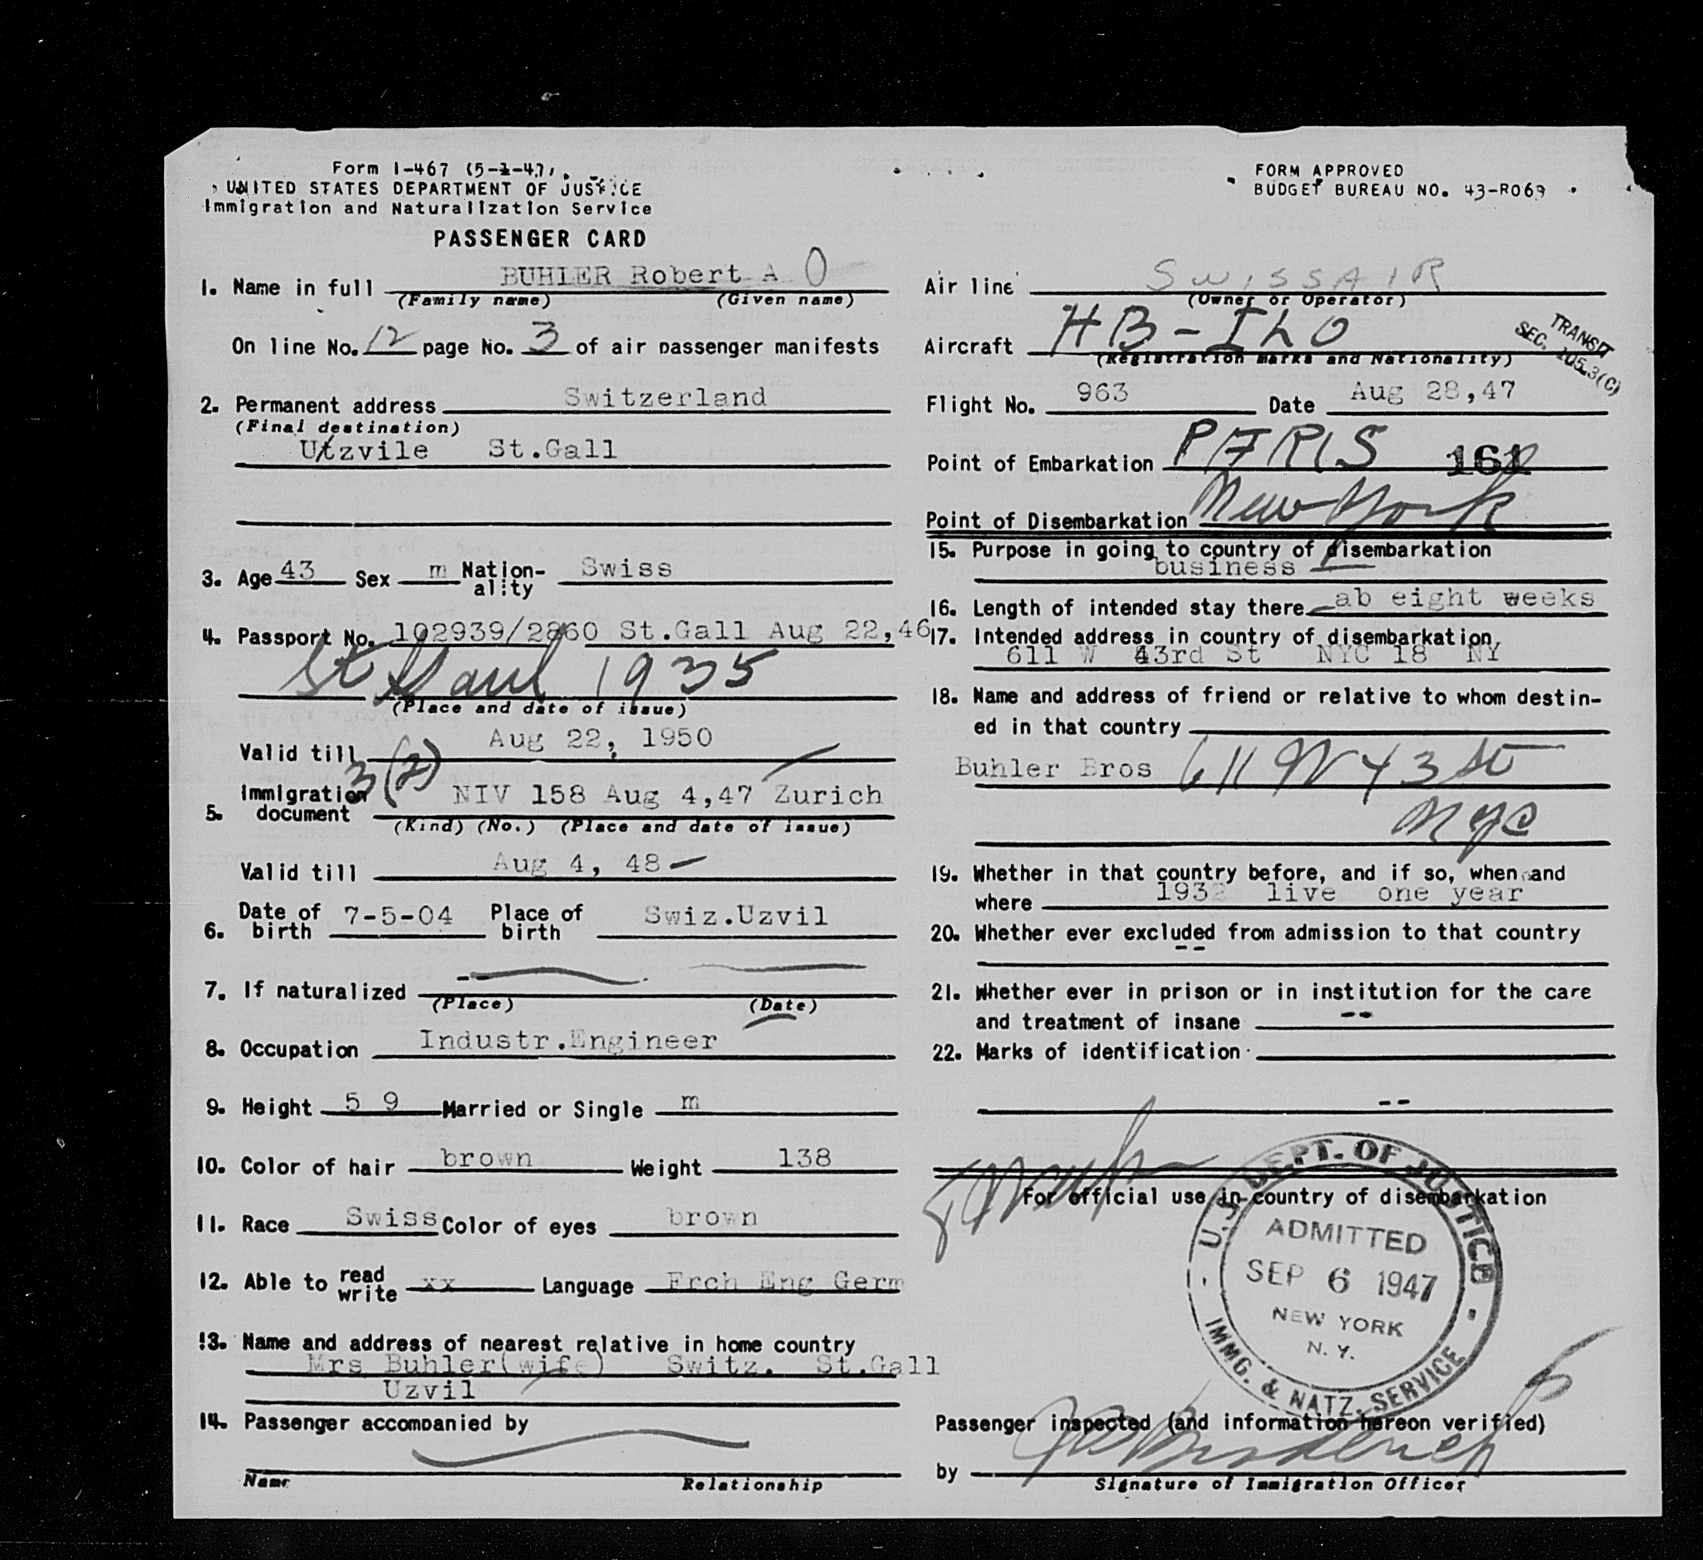 Form I-467 (5-1-47)
UNITED STATES DEPARTMENT OF JUSTICE
Immigration and Naturalization Service
PASSENGER CARD
FORM APPROVED
BUDGET BUREAU NO. 43-R069
1. Name in full BUHLER Robert A
(Family name) (Given name)
On line No. 12 page No. 3 of air passenger manifests
2. Permanent address Switzerland
(Final destination)
Utzvile St.Gall
3. Age 43 Sex m Nation-ality Swiss
4. Passport No. 102939/2860 St.Gall Aug 22,46
1935
(Place and date of issue)
Valid till Aug 22, 1950
3(2)
5. Immigration document NIV 158 Aug 4,47 Zurich
(Kind) (No.) (Place and date of issue)
Valid till Aug 4, 48
6. Date of birth 7-5-04 Place of birth Swiz.Uzvil
7. If naturalized --
(Place) (Date)
8. Occupation Industr.Engineer
9. Height 5 9 Married or Single m
10. Color of hair brown Weight 138
11. Race Swiss Color of eyes brown
12. Able to read write xx Language Frch Eng Germ
13. Name and address of nearest relative in home country
Mrs Buhler(wife) Switz. St.Gall
Uzvil
14. Passenger accompanied by
Name Relationship
Air line SWISSAIR
(Owner or Operator)
Aircraft HB-ILO
(Registration marks and Nationality)
TRANSIT
SEC. 105.3(C)
Flight No. 963 Date Aug 28,47
Point of Embarkation PARIS 161
Point of Disembarkation New York
15. Purpose in going to country of disembarkation
business
16. Length of intended stay there ab eight weeks
17. Intended address in country of disembarkation
611 W 43rd St NYC 18 NY
18. Name and address of friend or relative to whom destin-
ed in that country
Buhler Bros 611 W 43 St
NYC
19. Whether in that country before, and if so, when and
where 1932 live one year
20. Whether ever excluded from admission to that country
--
21. Whether ever in prison or in institution for the care
and treatment of insane --
22. Marks of identification
--
For official use in country of disembarkation
U.S. DEPT. OF JUSTICE
ADMITTED
SEP 6 1947
NEW YORK
N. Y.
IMMG. & NATZ. SERVICE
Passenger inspected (and information hereon verified)
by
Signature of Immigration Officer